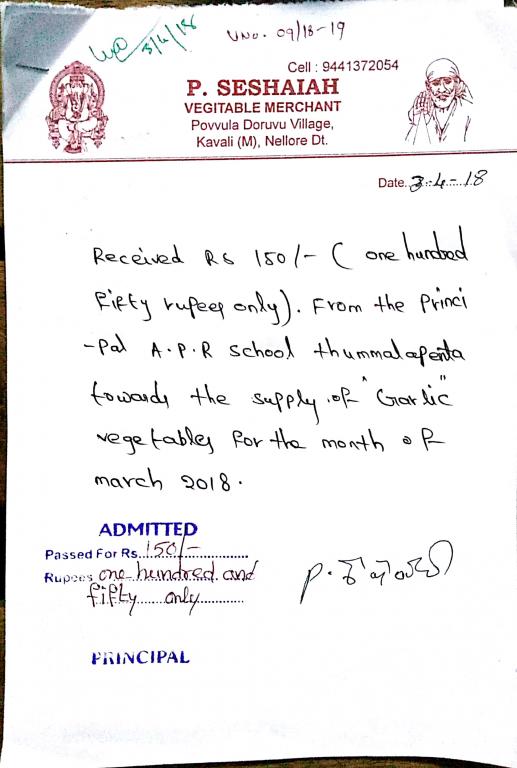 3/4/18
VNo. 09/18-19
Cell : 9441372054
P. SESHAIAH
VEGITABLE MERCHANT
Povvula Doruvu Village,
Kavali (M), Nellore Dt.
Date. 3-4-18
Received Rs 150/- ( one hundred
fifty rupees only). From the Princi
-pal A.P.R school thummalapenta
towards the supply of "Garlic"
vegetables for the month of
march 2018.
ADMITTED
Passed For Rs. 150/-
Rupees one hundred and
fifty only
P.
PRINCIPAL